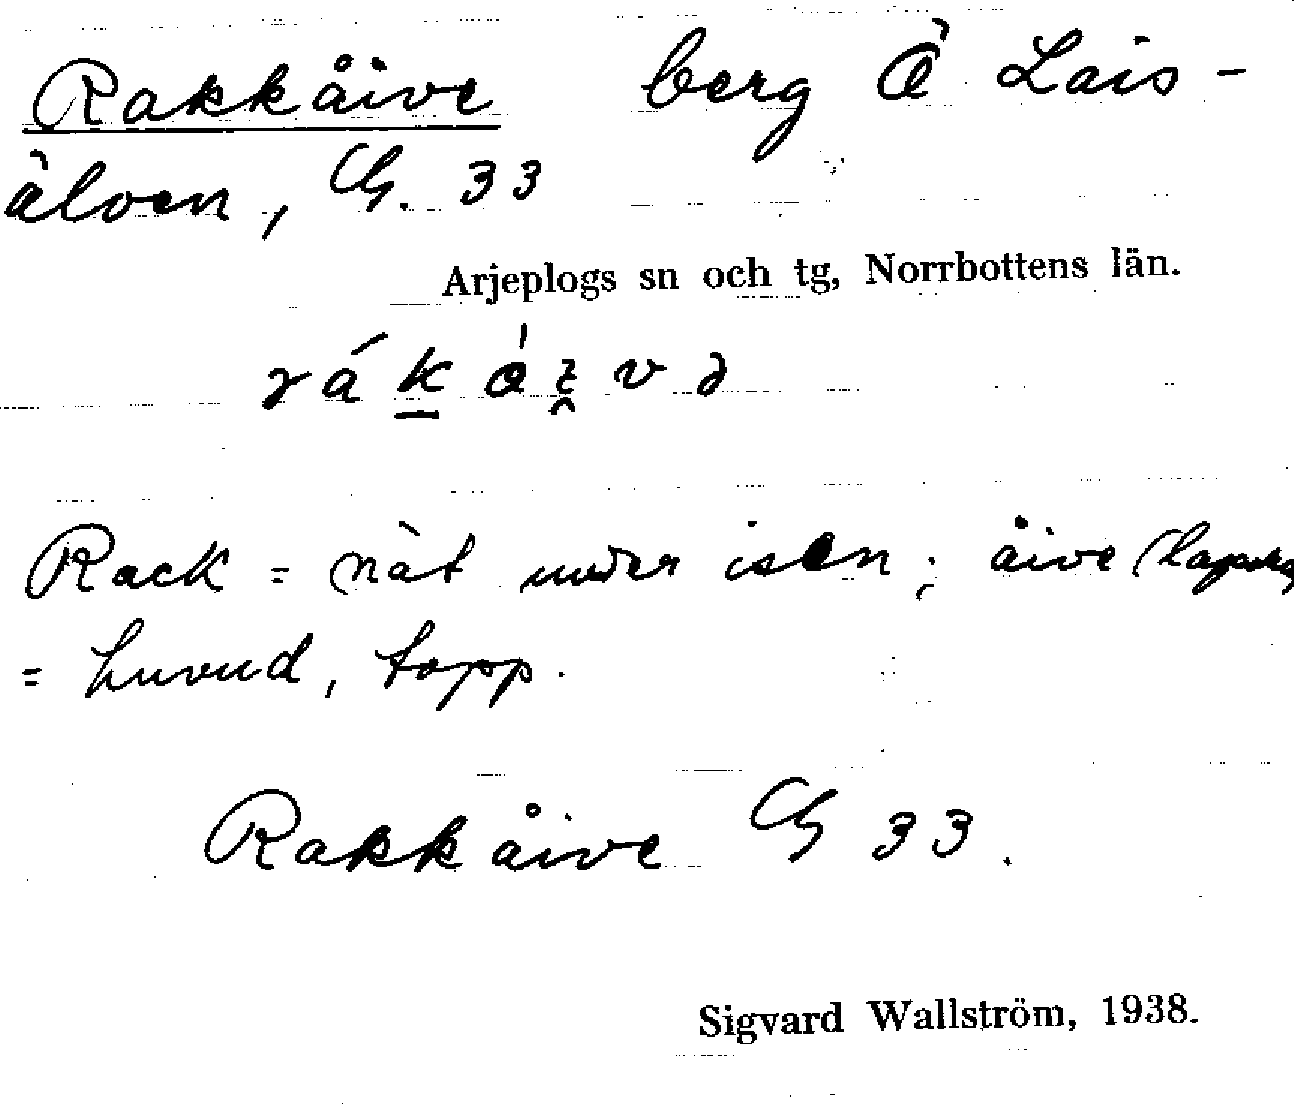 Rakkåive berg Ö Lais-
älven, G. 33
Arjeplogs sn och tg, Norrbottens län.
Rack = nät under isen; åive (lapska)
= huvud, topp.
Rakkåive G 33.
Sigvard Wallström, 1938.